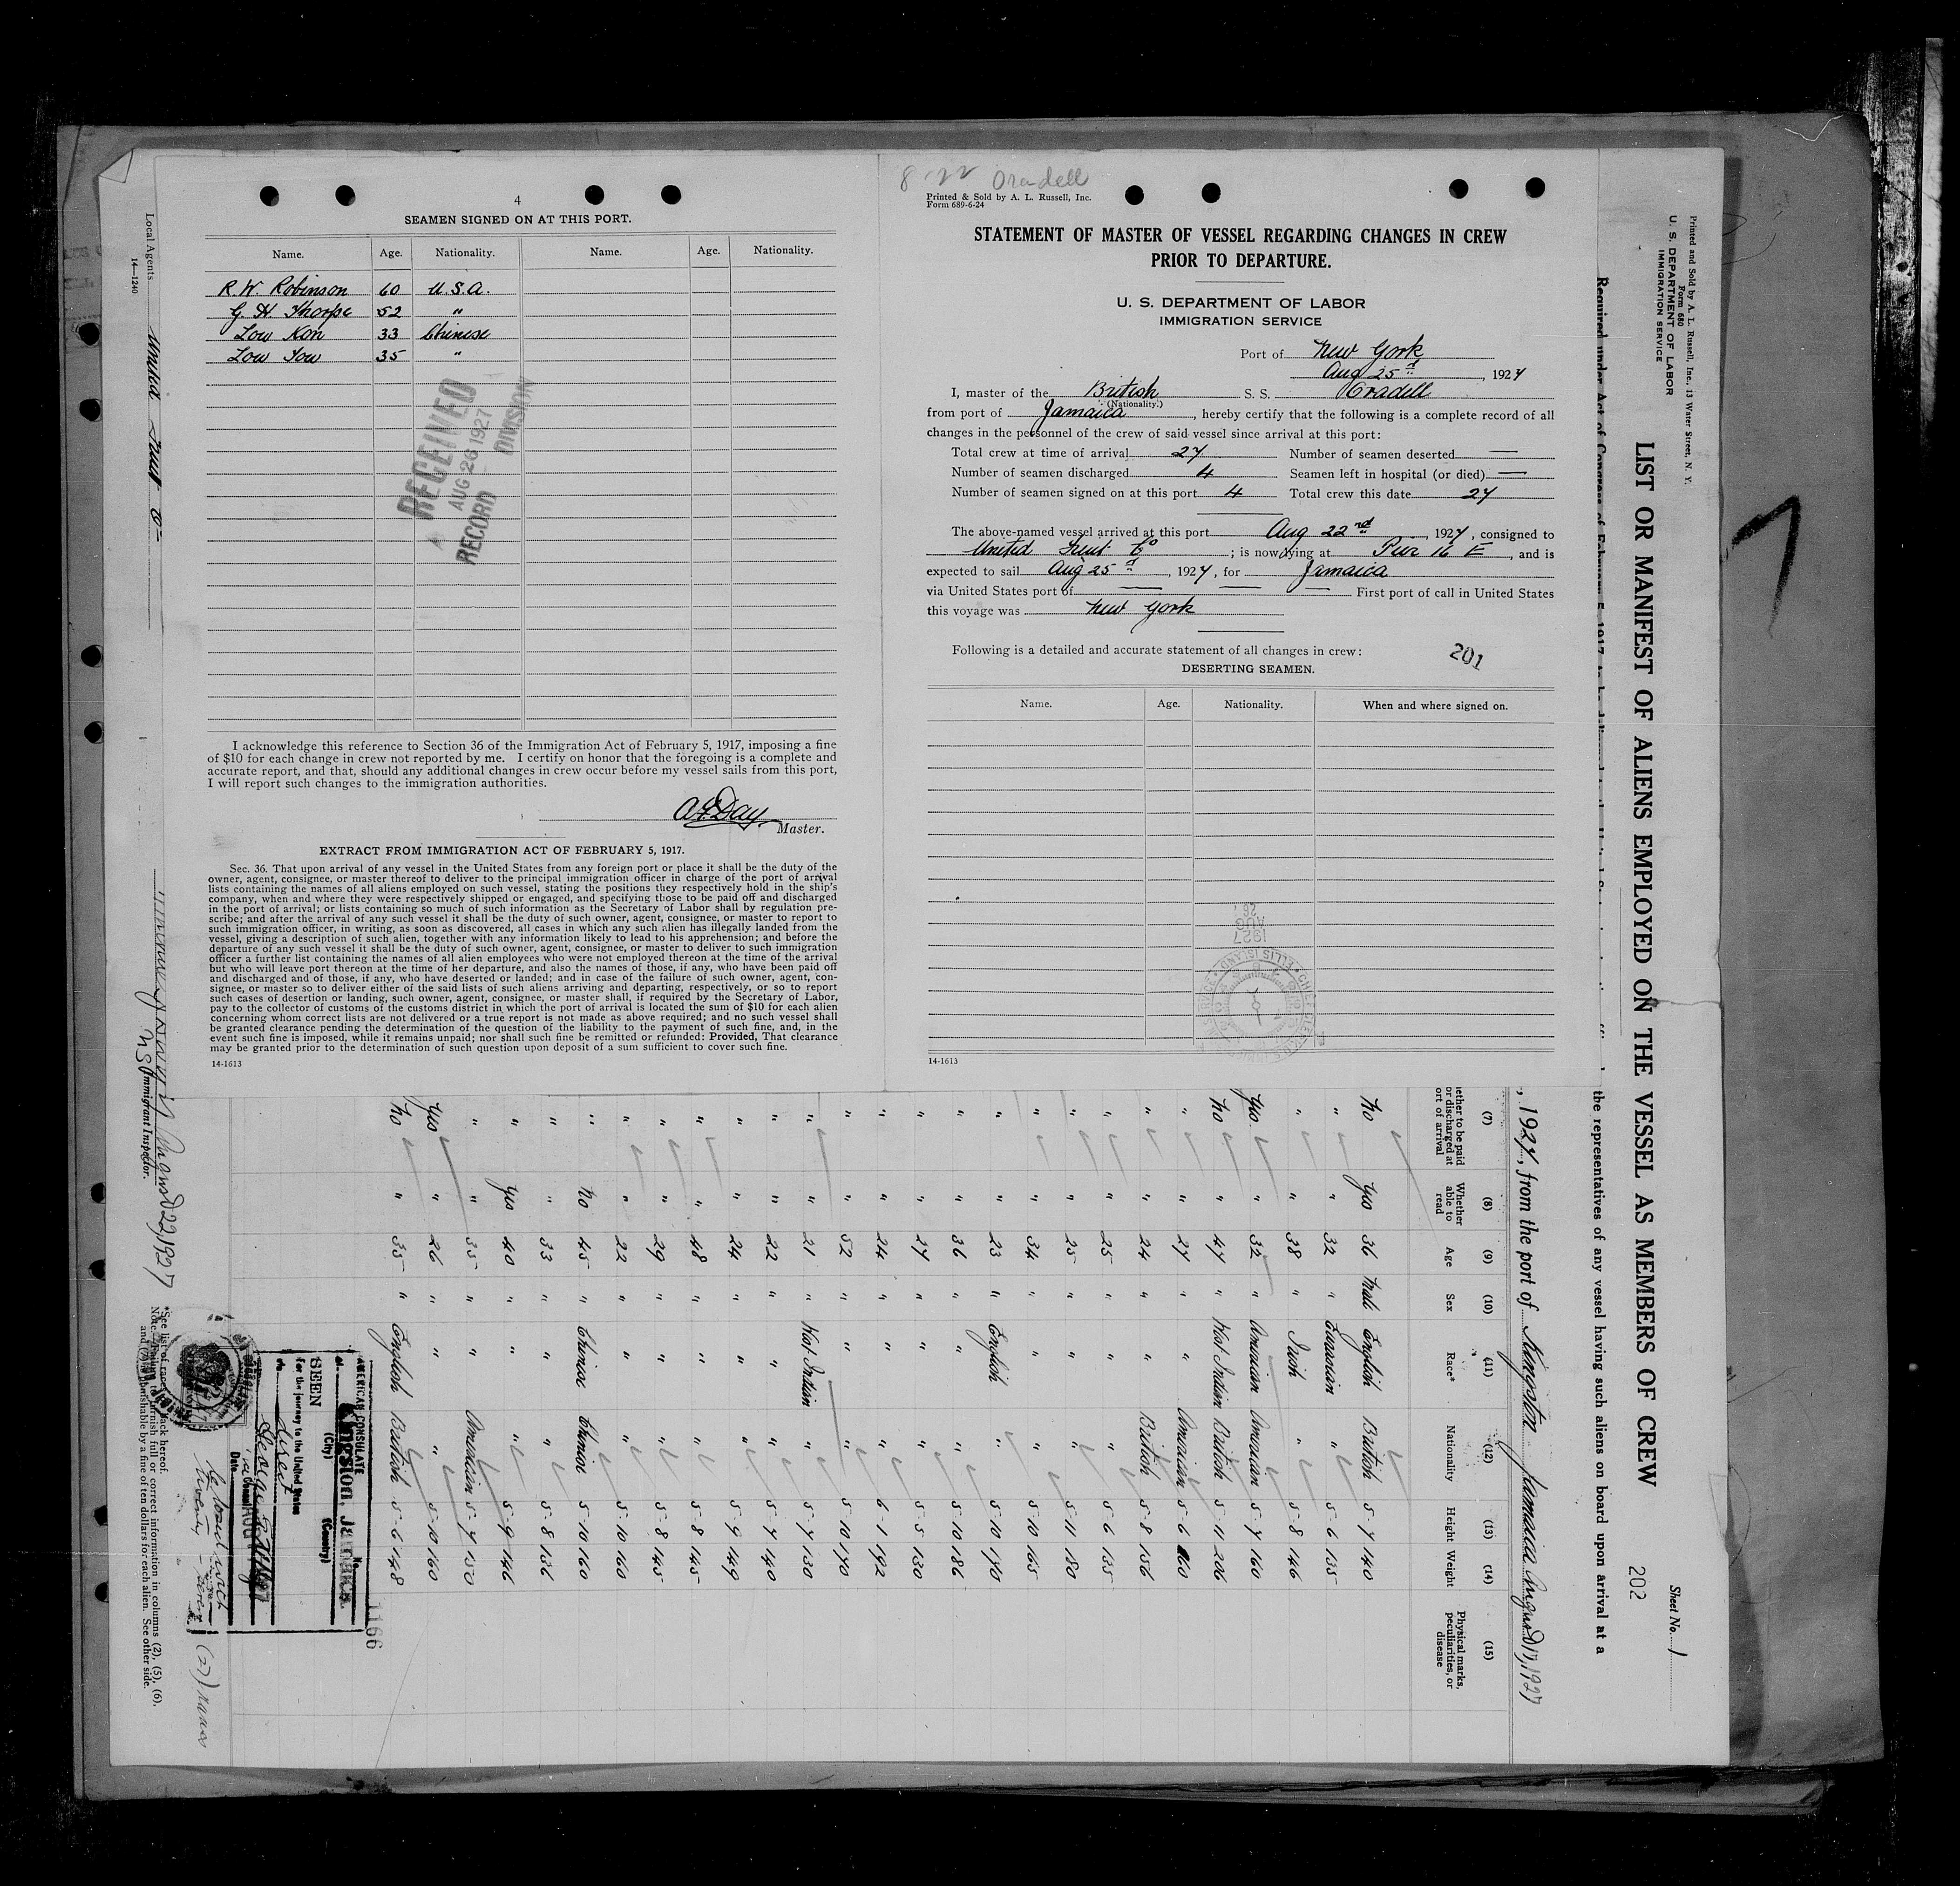 4
SEAMEN SIGNED ON AT THIS PORT.
Name. Age. Nationality. Name. Age. Nationality.
R. W. Robinson 60 U.S.A.
G. H. Thorpe 52 "
Low Kon 33 Chinese
Low Sow 35 "
RECEIVED
AUG 26 1927
RECORD DIVISION
I acknowledge this reference to Section 36 of the Immigration Act of February 5, 1917, imposing a fine
of $10 for each change in crew not reported by me. I certify on honor that the foregoing is a complete and
accurate report, and that, should any additional changes in crew occur before my vessel sails from this port,
I will report such changes to the immigration authorities.
Day
Master.
EXTRACT FROM IMMIGRATION ACT OF FEBRUARY 5, 1917.
Sec. 36. That upon arrival of any vessel in the United States from any foreign port or place it shall be the duty of the
owner, agent, consignee, or master thereof to deliver to the principal immigration officer in charge of the port of arrival
lists containing the names of all aliens employed on such vessel, stating the positions they respectively hold in the ship's
company, when and where they were respectively shipped or engaged, and specifying those to be paid off and discharged
in the port of arrival; or lists containing so much of such information as the Secretary of Labor shall by regulation pre-
scribe; and after the arrival of any such vessel it shall be the duty of such owner, agent, consignee, or master to report to
such immigration officer, in writing, as soon as discovered, all cases in which any such alien has illegally landed from the
vessel, giving a description of such alien, together with any information likely to lead to his apprehension; and before the
departure of any such vessel it shall be the duty of such owner, agent, consignee, or master to deliver to such immigration
officer a further list containing the names of all alien employees who were not employed thereon at the time of the arrival
but who will leave port thereon at the time of her departure, and also the names of those, if any, who have been paid off
and discharged and of those, if any, who have deserted or landed; and in case of the failure of such owner, agent, con-
signee, or master so to deliver either of the said lists of such aliens arriving and departing, respectively, or so to report
such cases of desertion or landing, such owner, agent, consignee, or master shall, if required by the Secretary of Labor,
pay to the collector of customs of the customs district in which the port of arrival is located the sum of $10 for each alien
concerning whom correct lists are not delivered or a true report is not made as above required; and no such vessel shall
be granted clearance pending the determination of the question of the liability to the payment of such fine, and, in the
event such fine is imposed, while it remains unpaid; nor shall such fine be remitted or refunded: Provided, That clearance
may be granted prior to the determination of such question upon deposit of a sum sufficient to cover such fine.
14-1613
8-22 Oradell
Printed & Sold by A. L. Russell, Inc.
Form 689-6-24
STATEMENT OF MASTER OF VESSEL REGARDING CHANGES IN CREW
PRIOR TO DEPARTURE.
U. S. DEPARTMENT OF LABOR
IMMIGRATION SERVICE
Port of New York
Aug 25th, 1927
I, master of the British S. S. Oradell
(Nationality.)
from port of Jamaica, hereby certify that the following is a complete record of all
changes in the personnel of the crew of said vessel since arrival at this port:
Total crew at time of arrival 27 Number of seamen deserted —
Number of seamen discharged 4 Seamen left in hospital (or died) —
Number of seamen signed on at this port 4 Total crew this date 27
The above-named vessel arrived at this port Aug 22nd, 1927, consigned to
United Fruit Co; is now lying at Pier 16 E, and is
expected to sail Aug 25th, 1927, for Jamaica
via United States port of — — — First port of call in United States
this voyage was New York
Following is a detailed and accurate statement of all changes in crew:
201
DESERTING SEAMEN.
Name. Age. Nationality. When and where signed on.
1927
AUG
26
ELLIS ISLAND
14-1613
Printed and Sold by A. L. Russell, Inc., 13 Water Street, N. Y.
Form 680
U. S. DEPARTMENT OF LABOR
IMMIGRATION SERVICE
Sheet No. 1
LIST OR MANIFEST OF ALIENS EMPLOYED ON THE VESSEL AS MEMBERS OF CREW
202
the representatives of any vessel having such aliens on board upon arrival at a
, 1927, from the port of Kingston Jamaica August 17, 1927
(7) (8) (9) (10) (11) (12) (13) (14) (15)
ether to be paid or discharged at ort of arrival Whether able to read Age Sex Race* Nationality Height Weight Physical marks, peculiarities, or disease
No Yes 36 Male English British 5-7 140
" " 32 " " 5-6 135
" " 38 " Irish " 5-8 146
Yes " 32 " American American 5-7 160
No " 47 " West Indian British 5-11 206
" " 27 " " American 5-6 160
" " 24 " " British 5-8 156
" " 25 " " " 5-6 135
" " 25 " " " 5-11 180
" " 34 " " " 5-10 165
" " 23 " English " 5-10 170
" " 36 " " " 5-10 186
" " 27 " " " 5-5 130
" " 24 " " " 6-1 192
" " 52 " " " 5-10 170
" " 21 " West Indian " 5-7 130
" " 22 " " " 5-7 140
" " 24 " " " 5-9 149
" " 48 " " " 5-8 145
" " 29 " " " 5-8 145
" " 22 " " " 5-10 160
" No 45 " Chinese Chinese 5-10 160
" " 33 " " " 5-8 136
" Yes 40 " " " 5-9 146
" " 35 " " American 5-7 150
Yes " 26 " " " 5-10 160
No " 35 " English British 5-6 148
1166
AMERICAN CONSULATE
at Kingston, Jamaica
(City) (Country)
No.
SEEN
For the journey to the United States
direct
Date
Local Agents United Fruit Co
14-1240
August 22, 1927
Immigrant Inspector.
(2)